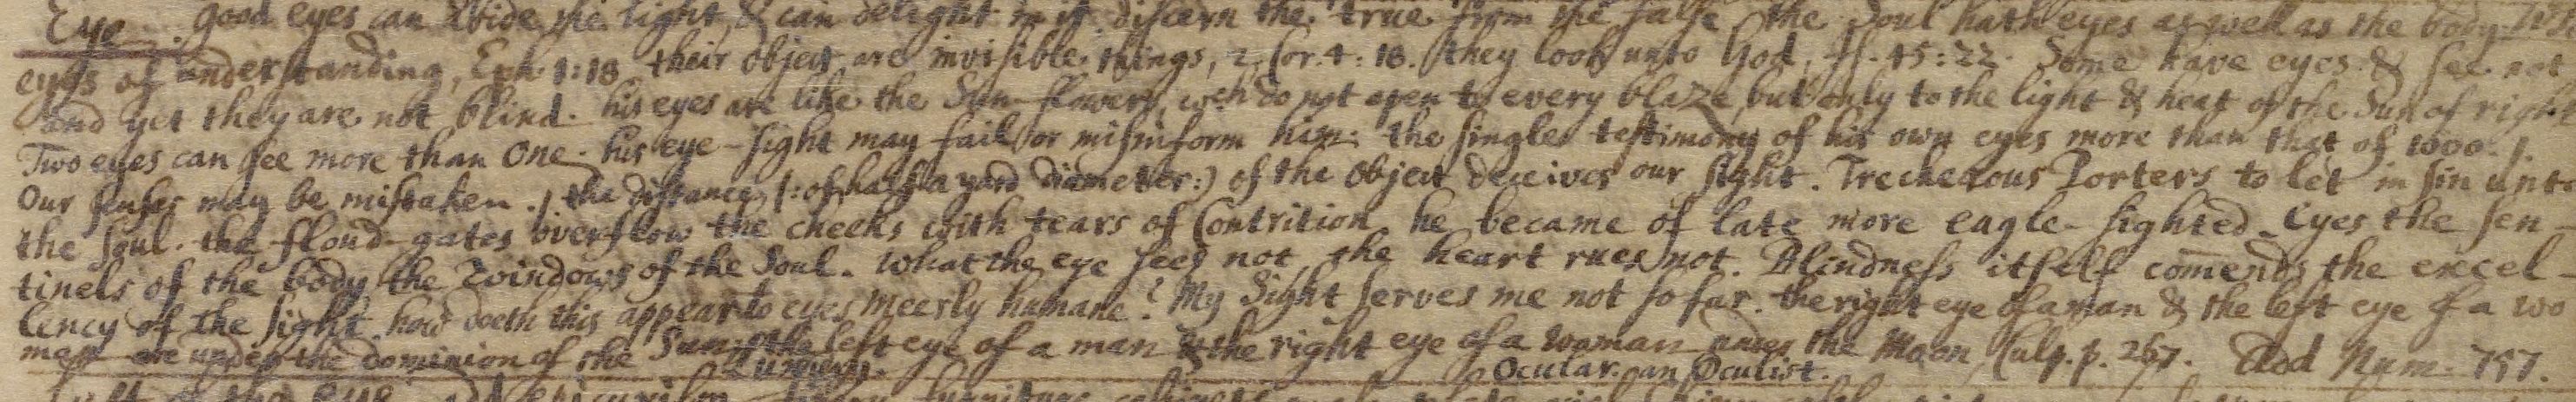 Eye. good eyes can abide the light, & can delight in it. discern the true from the false the Soul hath eyes as well as the body.
eyes of understanding, Eph. 1:18 their object are invisible things, 2 Cor. 4:18. they look unto God, 45:22. Some have eyes & see not
and yet they are not blind. his eyes are like the Sun-flowers, wch do not open to every blaze, but only to the light & heat of the Sun of right
Two eyes can see more than one. his eye-sight may fail or misinform him. the single testimony of his own eyes more than that of 1000.
Our senses may be mistaken. the distance (: of half a yard diameter:) of the object deceives our sight. Trecherous Porters to let in sin unto
the soul. the floud-gates overflow the cheeks with tears of Contrition he became of late more eagle-sighted. Eyes the sen-
tinels of the body, the Windows of the Soul. What the eye sees not the heart rues not. Blindness itself comends the excel-
lency of the sight. how doeth this appear to eyes meerly humane? My Sight serves me not so far. the right eye of a man & the left eye of a wo
man are under the dominion of the Sun: the left eye of a man & the right eye of a woman under the Moon, Culp. p. 267. Add Num. 757.
Ocular. an Oculist.